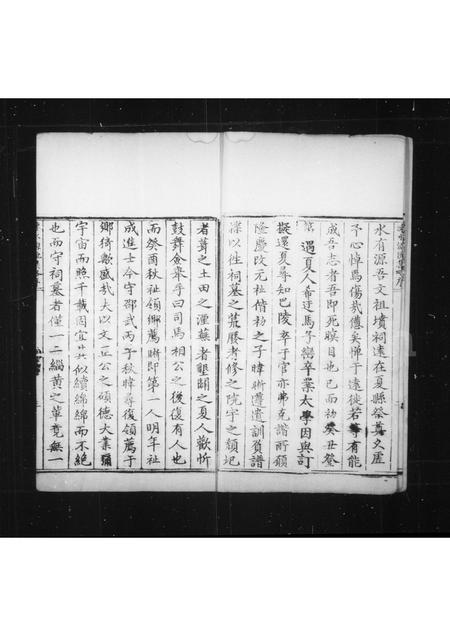 水有源吾文祖墳祠遠在夏縣祭奠久虛
予心悼焉傷哉傳矣憚于遠徙若等有能
成吾志者吾即死瞑目也已而初癸丑登
第遇夏人希迂馬子巒卒業太學因與訂
擬還夏尋知巴陵卒于官亦弗克諧所願
隆慶改元祉偕初之子暐晰遵遺訓負譜
牒以往祠墓之荒廢者修之院宇之頹圮
者葺之土田之湮蕪者墾闢之夏人歡忻
鼓舞僉樂乎曰司馬相公之後復有人也
而癸酉秋祉領鄉薦晰即第一人明年祉
成進士令守邵武丙子秋暐尋復領薦于
鄉猗歟盛哉夫以文正公之碩德大業彌
宇宙而照千載固宜其似續綿綿而不絕
也而守祠墓者僅一二緇黃之輩竟無一